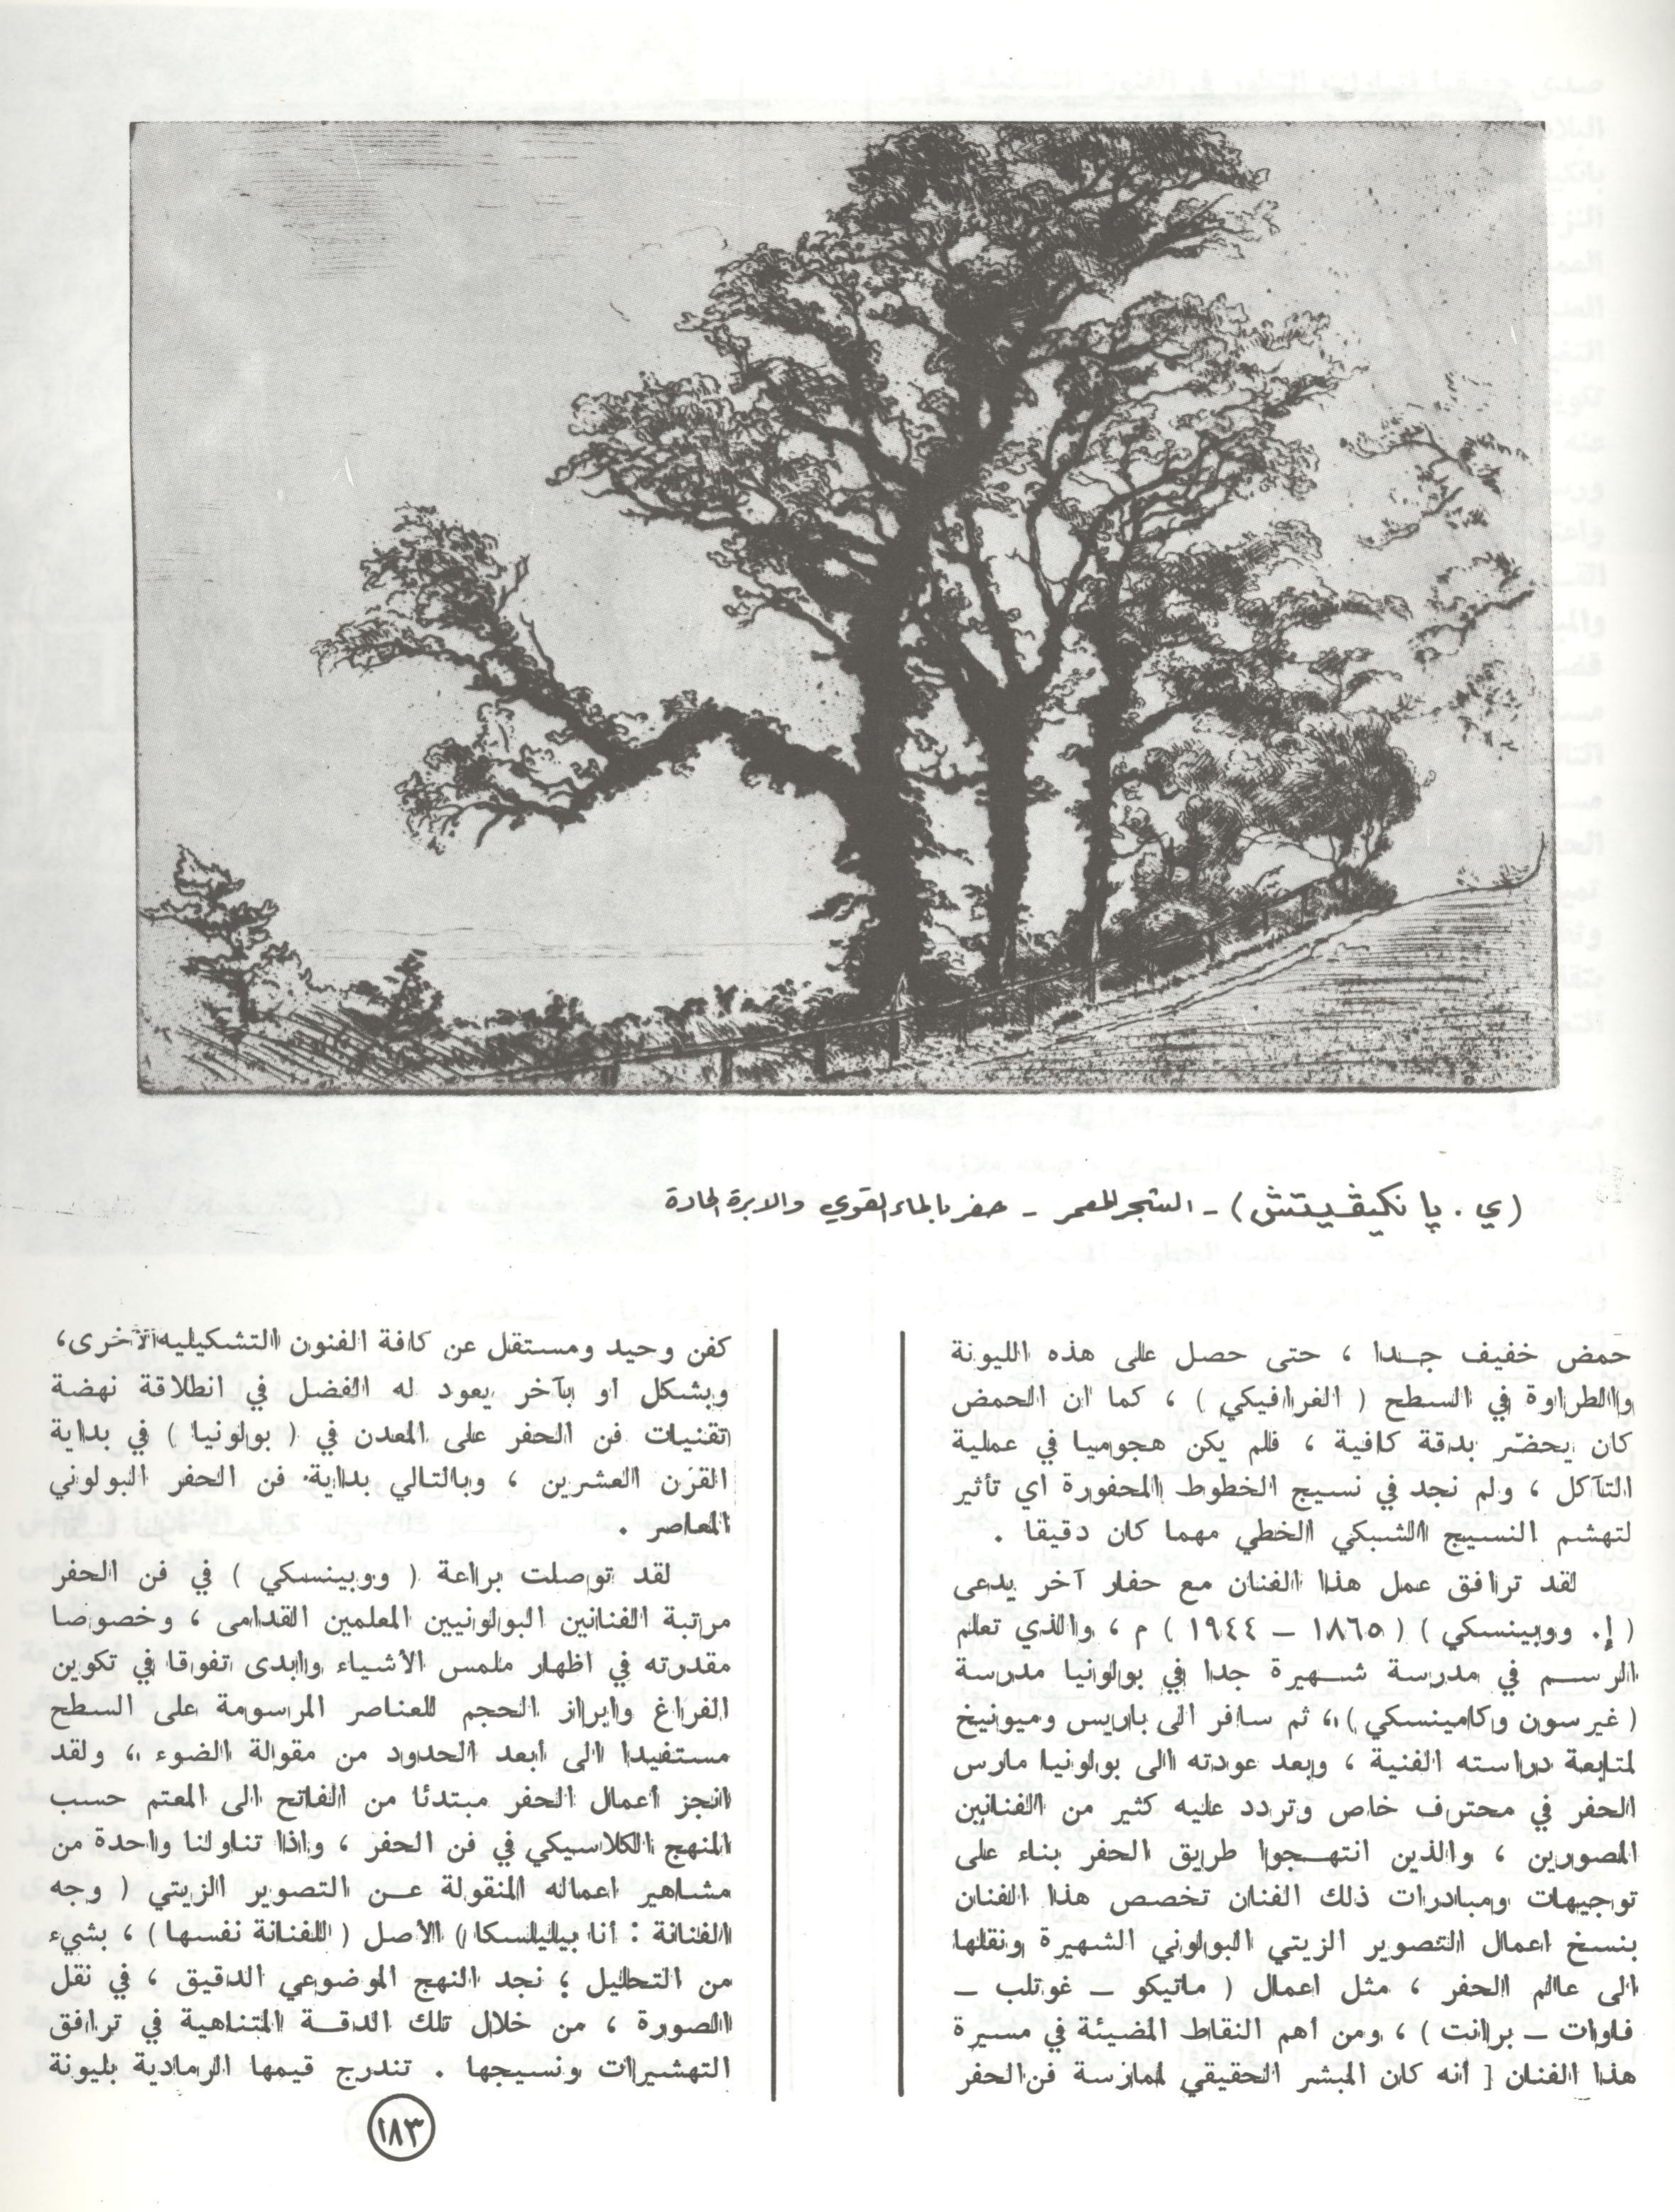 (ي . پانكيڤيتش) - الشجر المعمر - حفر بالماء القوي والابرة الحادة
حمض خفيف جدا ، حتى حصل على هذه الليونة
والطراوة في السطح ( الغرافيكي ) ، كما ان الحمض
كان يحضّر بدقة كافية ، فلم يكن هجوميا في عملية
التآكل ، ولم نجد في نسيج الخطوط المحفورة اي تأثير
لتهشم النسيج الشبكي الخطي مهما كان دقيقا .
لقد ترافق عمل هذا الفنان مع حفار آخر يدعى
( إ. ووبينسكي ) ( ١٨٦٥ – ١٩٤٤ ) م ، والذي تعلم
الرسم في مدرسة شهيرة جدا في بولونيا مدرسة
( غيرسون وكامينسكي ) ، ثم سافر الى باريس وميونيخ
لمتابعة دراسته الفنية ، وبعد عودته الى بولونيا مارس
الحفر في محترف خاص وتردد عليه كثير من الفنانين
المصورين ، والذين انتهجوا طريق الحفر بناء على
توجيهات ومبادرات ذلك الفنان تخصص هذا الفنان
بنسخ اعمال التصوير الزيتي البولوني الشهيرة ونقلها
الى عالم الحفر ، مثل اعمال ( ماتيكو – غوتلب –
فاوات – برانت ) ، ومن اهم النقاط المضيئة في مسيرة
هذا الفنان [ أنه كان المبشر الحقيقي لممارسة فن الحفر
كفن وحيد ومستقل عن كافة الفنون التشكيليه الآخرى،
وبشكل او بآخر يعود له الفضل في انطلاقة نهضة
تقنيات فن الحفر على المعدن في ( بولونيا ) في بداية
القرن العشرين ، وبالتالي بداية فن الحفر البولوني
المعاصر .
لقد توصلت براعة ( ووبينسكي ) في فن الحفر
مرتبة الفنانين البولونيين المعلمين القدامى ، وخصوصا
مقدرته في اظهار ملمس الأشياء وابدى تفوقا في تكوين
الفراغ وابراز الحجم للعناصر المرسومة على السطح
مستفيدا الى أبعد الحدود من مقولة الضوء ، ولقد
انجز أعمال الحفر مبتدئا من الفاتح الى المعتم حسب
المنهج الكلاسيكي في فن الحفر ، واذا تناولنا واحدة من
مشاهير اعماله المنقولة عن التصوير الزيتي ( وجه
الفنانة : أنا بيليلسكا ) الأصل ( للفنانة نفسها ) ، بشيء
من التحليل ؛ نجد النهج الموضوعي الدقيق ، في نقل
الصورة ، من خلال تلك الدقة المتناهية في ترافق
التهشيرات ونسيجها . تندرج قيمها الرمادية بليونة
١٨٣